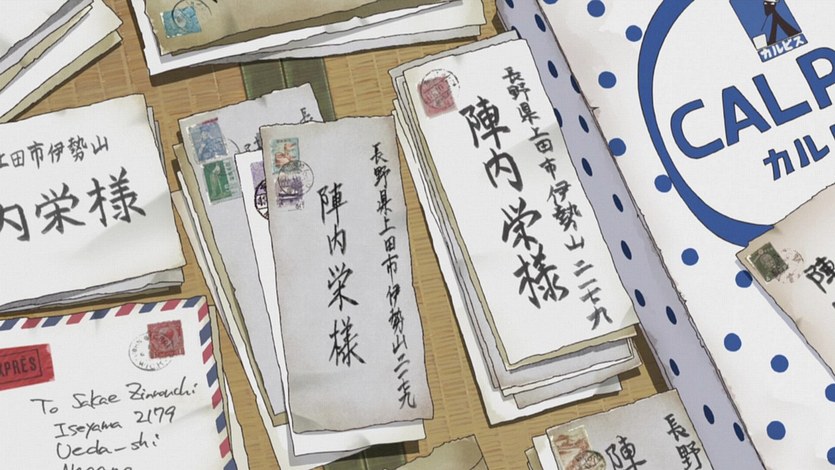 上田市伊勢山
内栄様
EXPRÈS
To Sakae Zinnouchi
Iseyama 2179
Ueda-shi
Nagano
長野県上田市伊勢山二一七九
陣内栄様
長野県上田市伊勢山二一七九
陣内栄様
カルピス
CALP
カル
陣
長野
陣
長